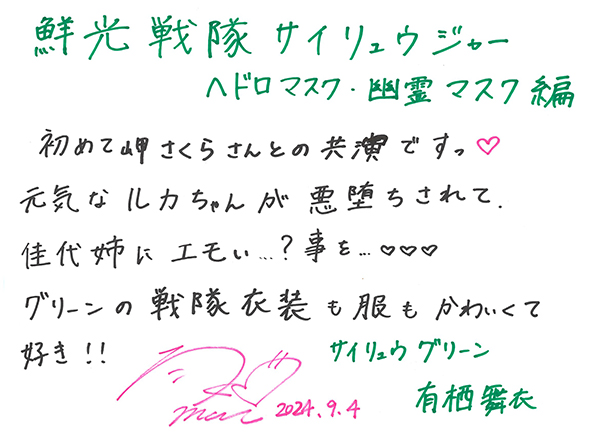 鮮光戦隊サイリュウジャー
ヘドロマスク・幽霊マスク編
初めて岬さくらさんとの共演ですっ♡
元気なルカちゃんが悪堕ちされて、
佳代姉にエモい…?事を…♡♡♡
グリーンの戦隊衣装も服もかわいくて
好き!!
サイリュウグリーン
有栖舞衣
2024.9.4